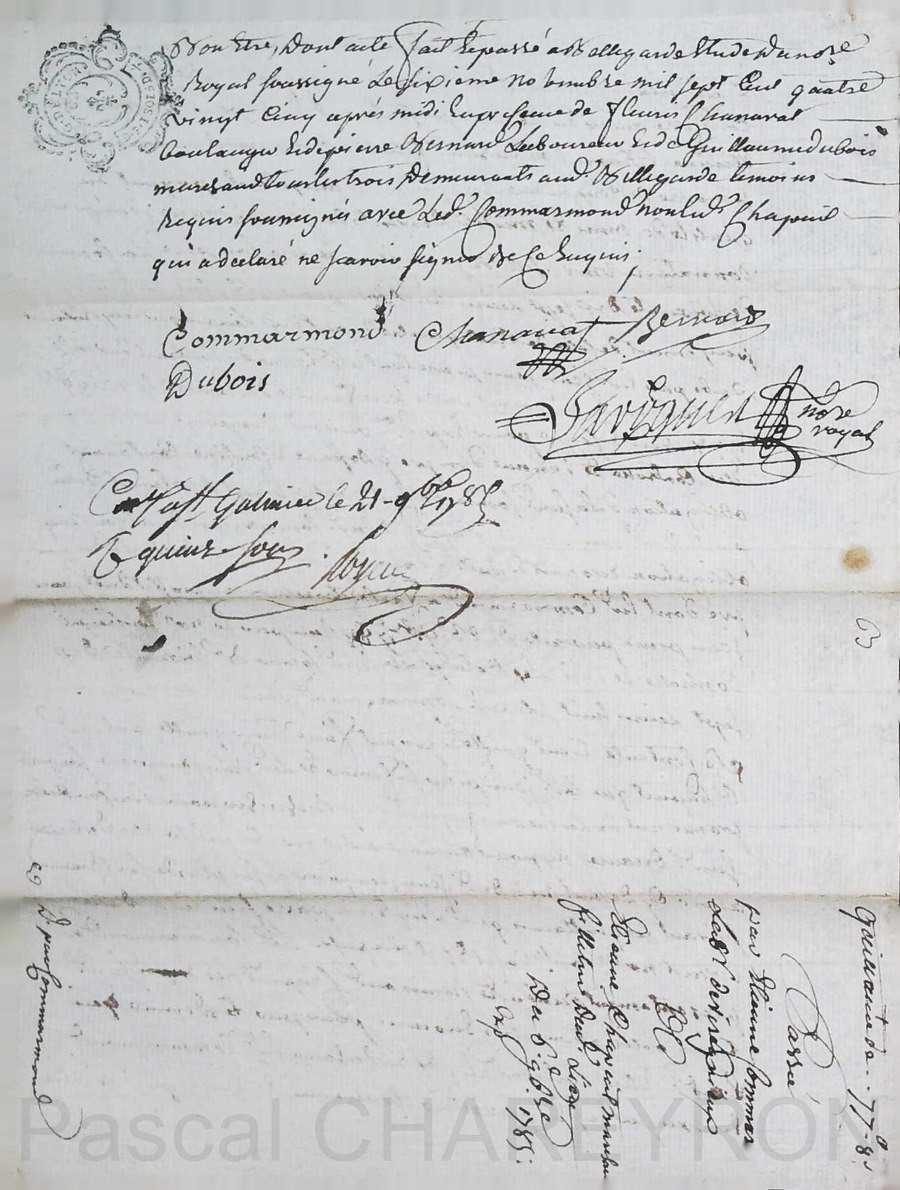 Bon Etre, Dont acte fait Et passé a Bellegarde Etude du nore
Royal soussigné Le sixieme novembre mil sept Cent quatre
vingt Cinq après midi En presence de fleuris Chanavat
boulanger Et de pierre Bernard Laboureur Et de Guillaume dubois
marchand tous les trois Demeurants aud. Bellegarde temoins
Requis soussignés avec Led. Commarmond non led. Chapuil
qui a declaré ne scavoir signer de Ce Enquis
Commarmond Chanavat Bernard
Dubois
nore
royal
Galmier le 21 9bre 1785
quinze sous
63
quittance de 77
Passé
par Etienne Commar
Lab.
à
Etienne Chapuil marchand
Du 6e 9bre
1785
Exp
Dt. par Commarmond
Pascal CHAREYRON